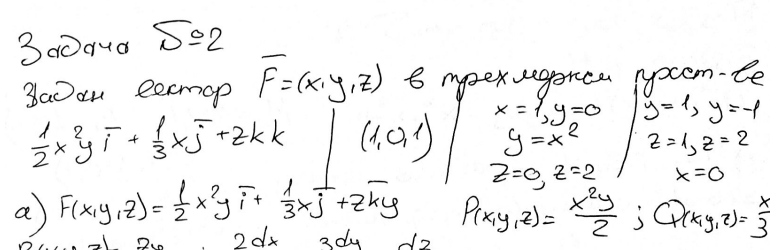 Задача №2
Задан вектор F̅=(x,y,z) в трехмерном прост-ве
½x²y i̅ + ⅓x j̅ + zk k | (1,0,1) | x=1, y=0 | y=1, y=-1
y=x² | z=1, z=2
z=0, z=2 | x=0
а) F(x,y,z)=½x²y i̅ + ⅓x j̅ + z k̅ y P(x,y,z)=x²y/2 ; Q(x,y,z)=x/3